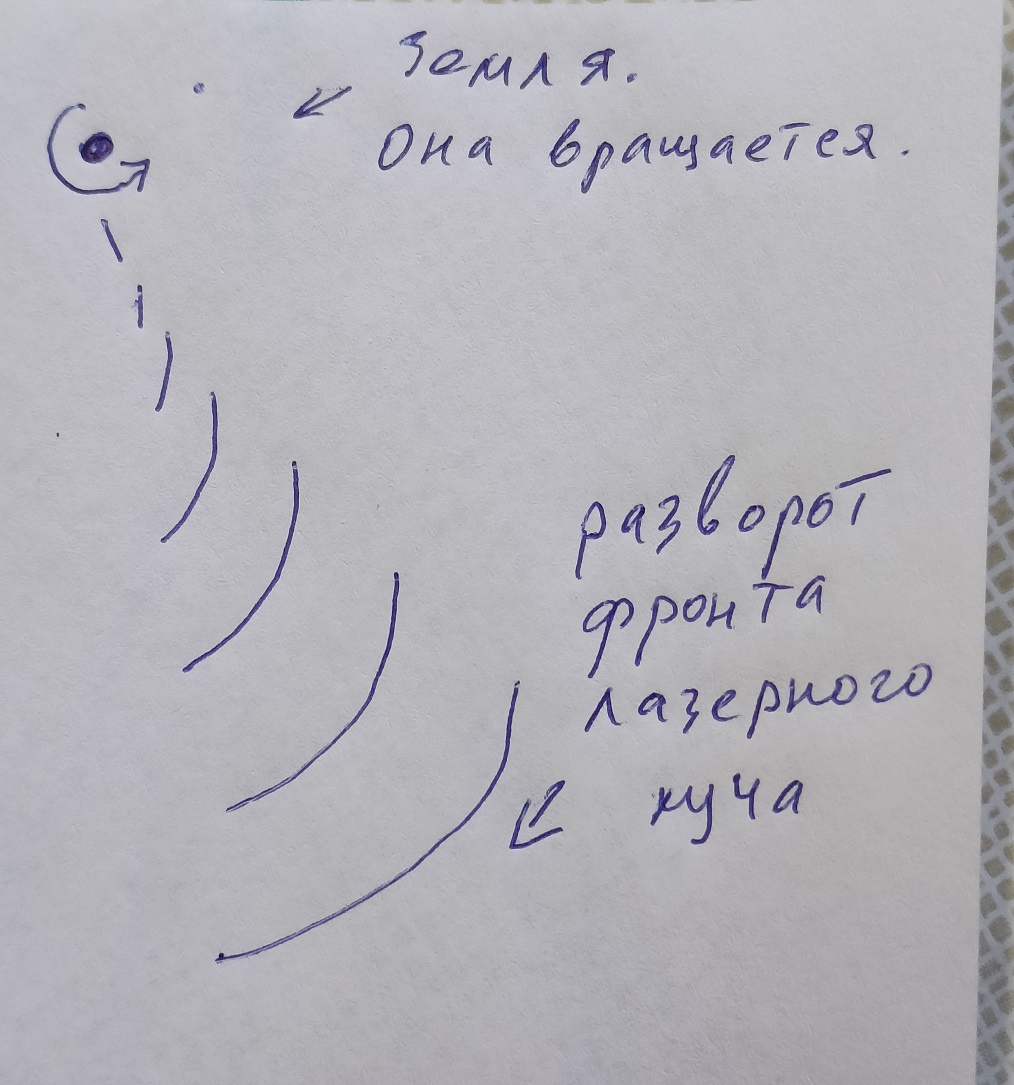 Земля.
Она вращается.
разворот
фронта
лазерного
луча